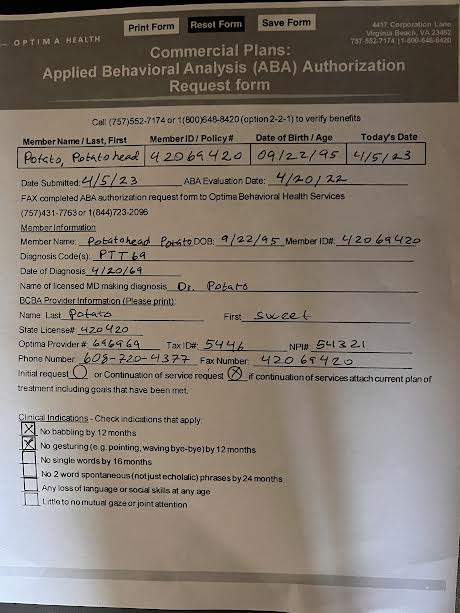 Print Form Reset Form Save Form
OPTIMA HEALTH
4417 Corporation Lane
Virginia Beach, VA 23462
757-552-7174 | 1-800-648-8420
Commercial Plans:
Applied Behavioral Analysis (ABA) Authorization
Request form
Call (757)552-7174 or 1(800)648-8420 (option 2-2-1) to verify benefits
Member Name / Last, First Member ID / Policy # Date of Birth / Age Today's Date
Potato, Potatohead 42069420 09/22/95 4/5/23
Date Submitted: 4/5/23 ABA Evaluation Date: 4/20/22
FAX completed ABA authorization request form to Optima Behavioral Health Services
(757)431-7763 or 1(844)723-2096
Member Information
Member Name: Potatohead Potato DOB: 9/22/95 Member ID#: 42069420
Diagnosis Code(s): PTT69
Date of Diagnosis 4/20/69
Name of licensed MD making diagnosis Dr. Potato
BCBA Provider Information (Please print):
Name: Last Potato First Sweet
State License# 420420
Optima Provider #: 696969 Tax ID#: 5446 NPI# 54321
Phone Number: 608-720-4377 Fax Number: 42069420
Initial request or Continuation of service request X if continuation of services attach current plan of
treatment including goals that have been met.
Clinical Indications - Check indications that apply:
X No babbling by 12 months
X No gesturing (e.g. pointing, waving bye-bye) by 12 months
No single words by 16 months
No 2 word spontaneous (not just echolalic) phrases by 24 months
Any loss of language or social skills at any age
Little to no mutual gaze or joint attention